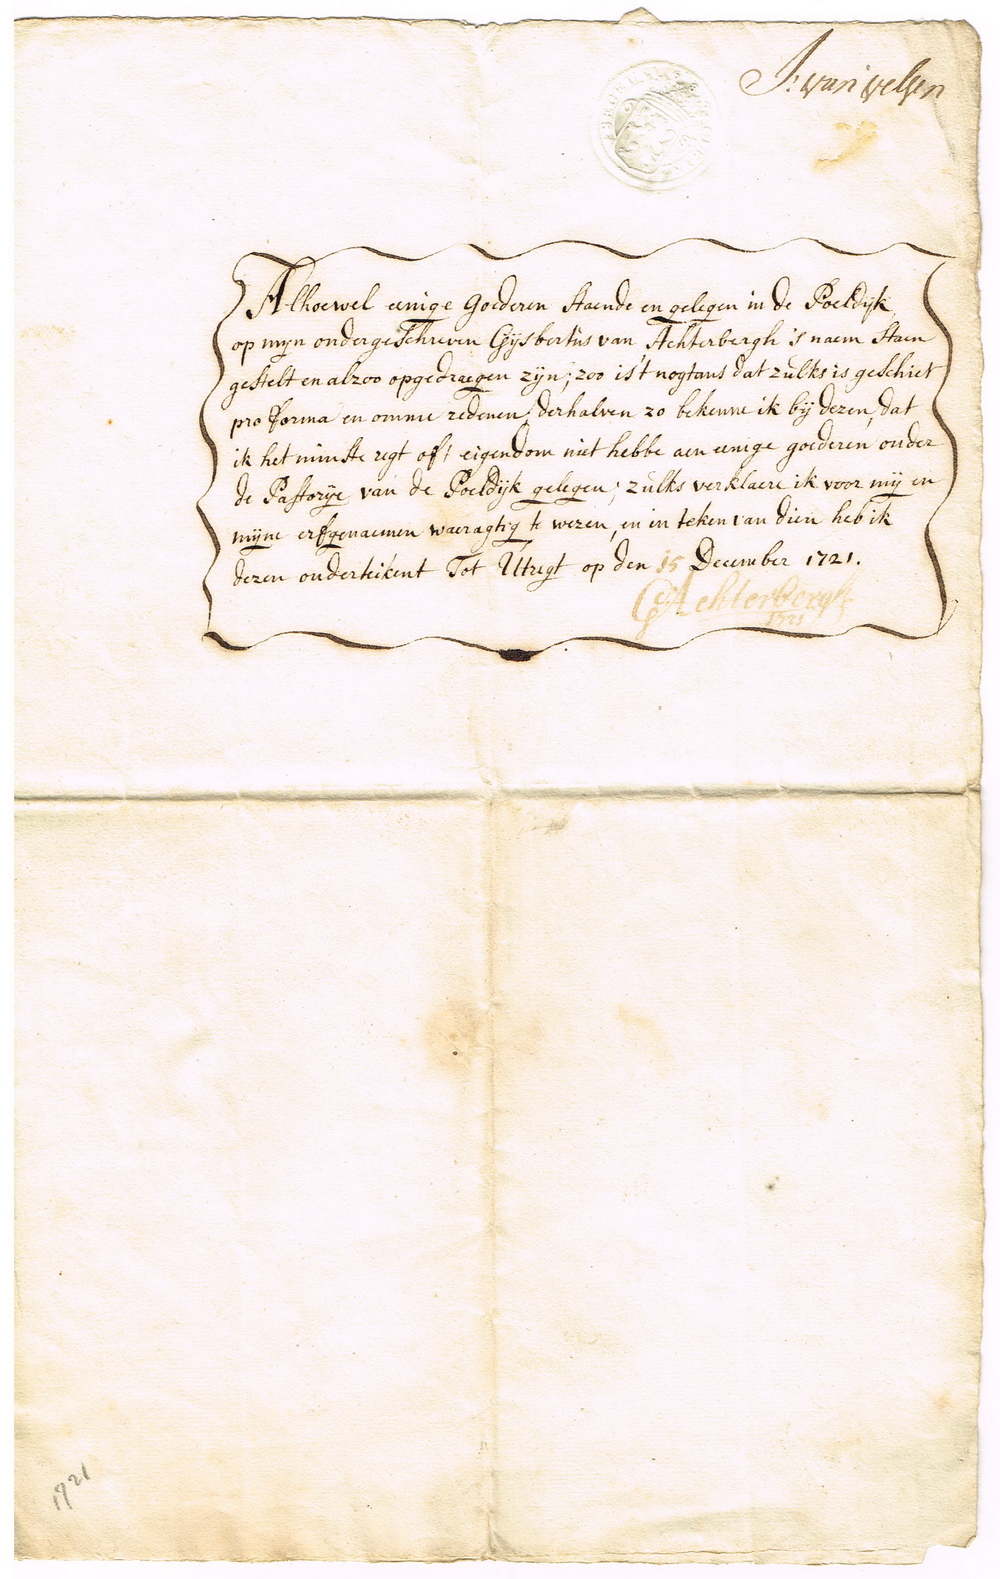 J: van velsen
Alhoewel eenige Goederen staende en gelegen in de Poeldijk,
op mijn ondergeschreven Gijsbertus van Achterbergh 's naem staen
gestelt en alzoo opgedraegen zijn; zoo is't nogtans dat zulks is geschiet
pro forma en om me redenen, derhalven zo bekenne ik bij dezen, dat
ik het minste regt oft eigendom niet hebbe aen eenige goederen onder
de Pastorije van de Poeldijk gelegen; zulks verklaere ik voor mij en
mijne erfgenaemen waeragtig te wezen, en in teken van dien heb ik
dezen onderteikent Tot Utregt op den 15 December 1721.
G Achterbergh
1721
1721